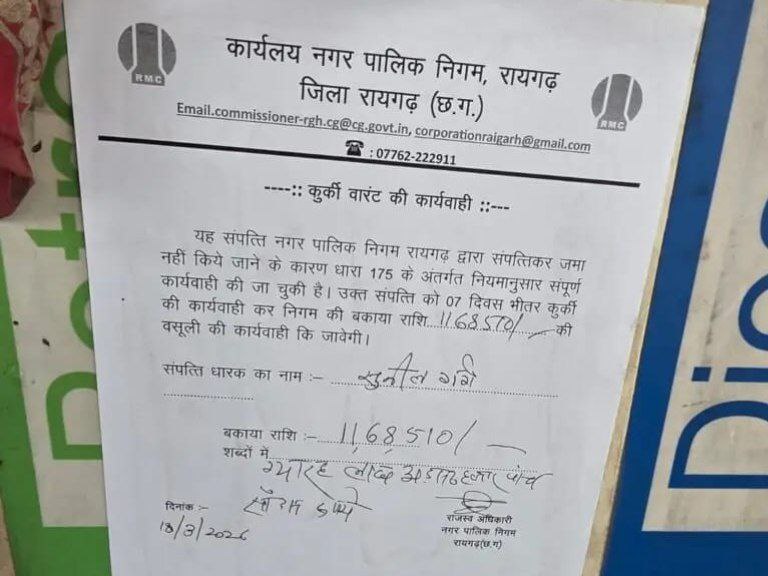 RMC
कार्यलय नगर पालिक निगम, रायगढ़
जिला रायगढ़ (छ.ग.)
Email.commissioner-rgh.cg@cg.govt.in, corporationraigarh@gmail.com
RMC
☎ : 07762-222911
----:: कुर्की वारंट की कार्यवाही ::---
यह संपत्ति नगर पालिक निगम रायगढ़ द्वारा संपत्तिकर जमा
नहीं किये जाने के कारण धारा 175 के अंतर्गत नियमानुसार संपूर्ण
कार्यवाही की जा चुकी है। उक्त संपत्ति को 07 दिवस भीतर कुर्की
की कार्यवाही कर निगम की बकाया राशि 1168510/- की
वसूली की कार्यवाही कि जावेगी।
संपत्ति धारक का नाम :- सुनील
बकाया राशि :- 11,68,510/-
शब्दों में ग्यारह लाख हजार पांच
रूपये
दिनांक :-
राजस्व अधिकारी
नगर पालिक निगम
रायगढ़(छ.ग)